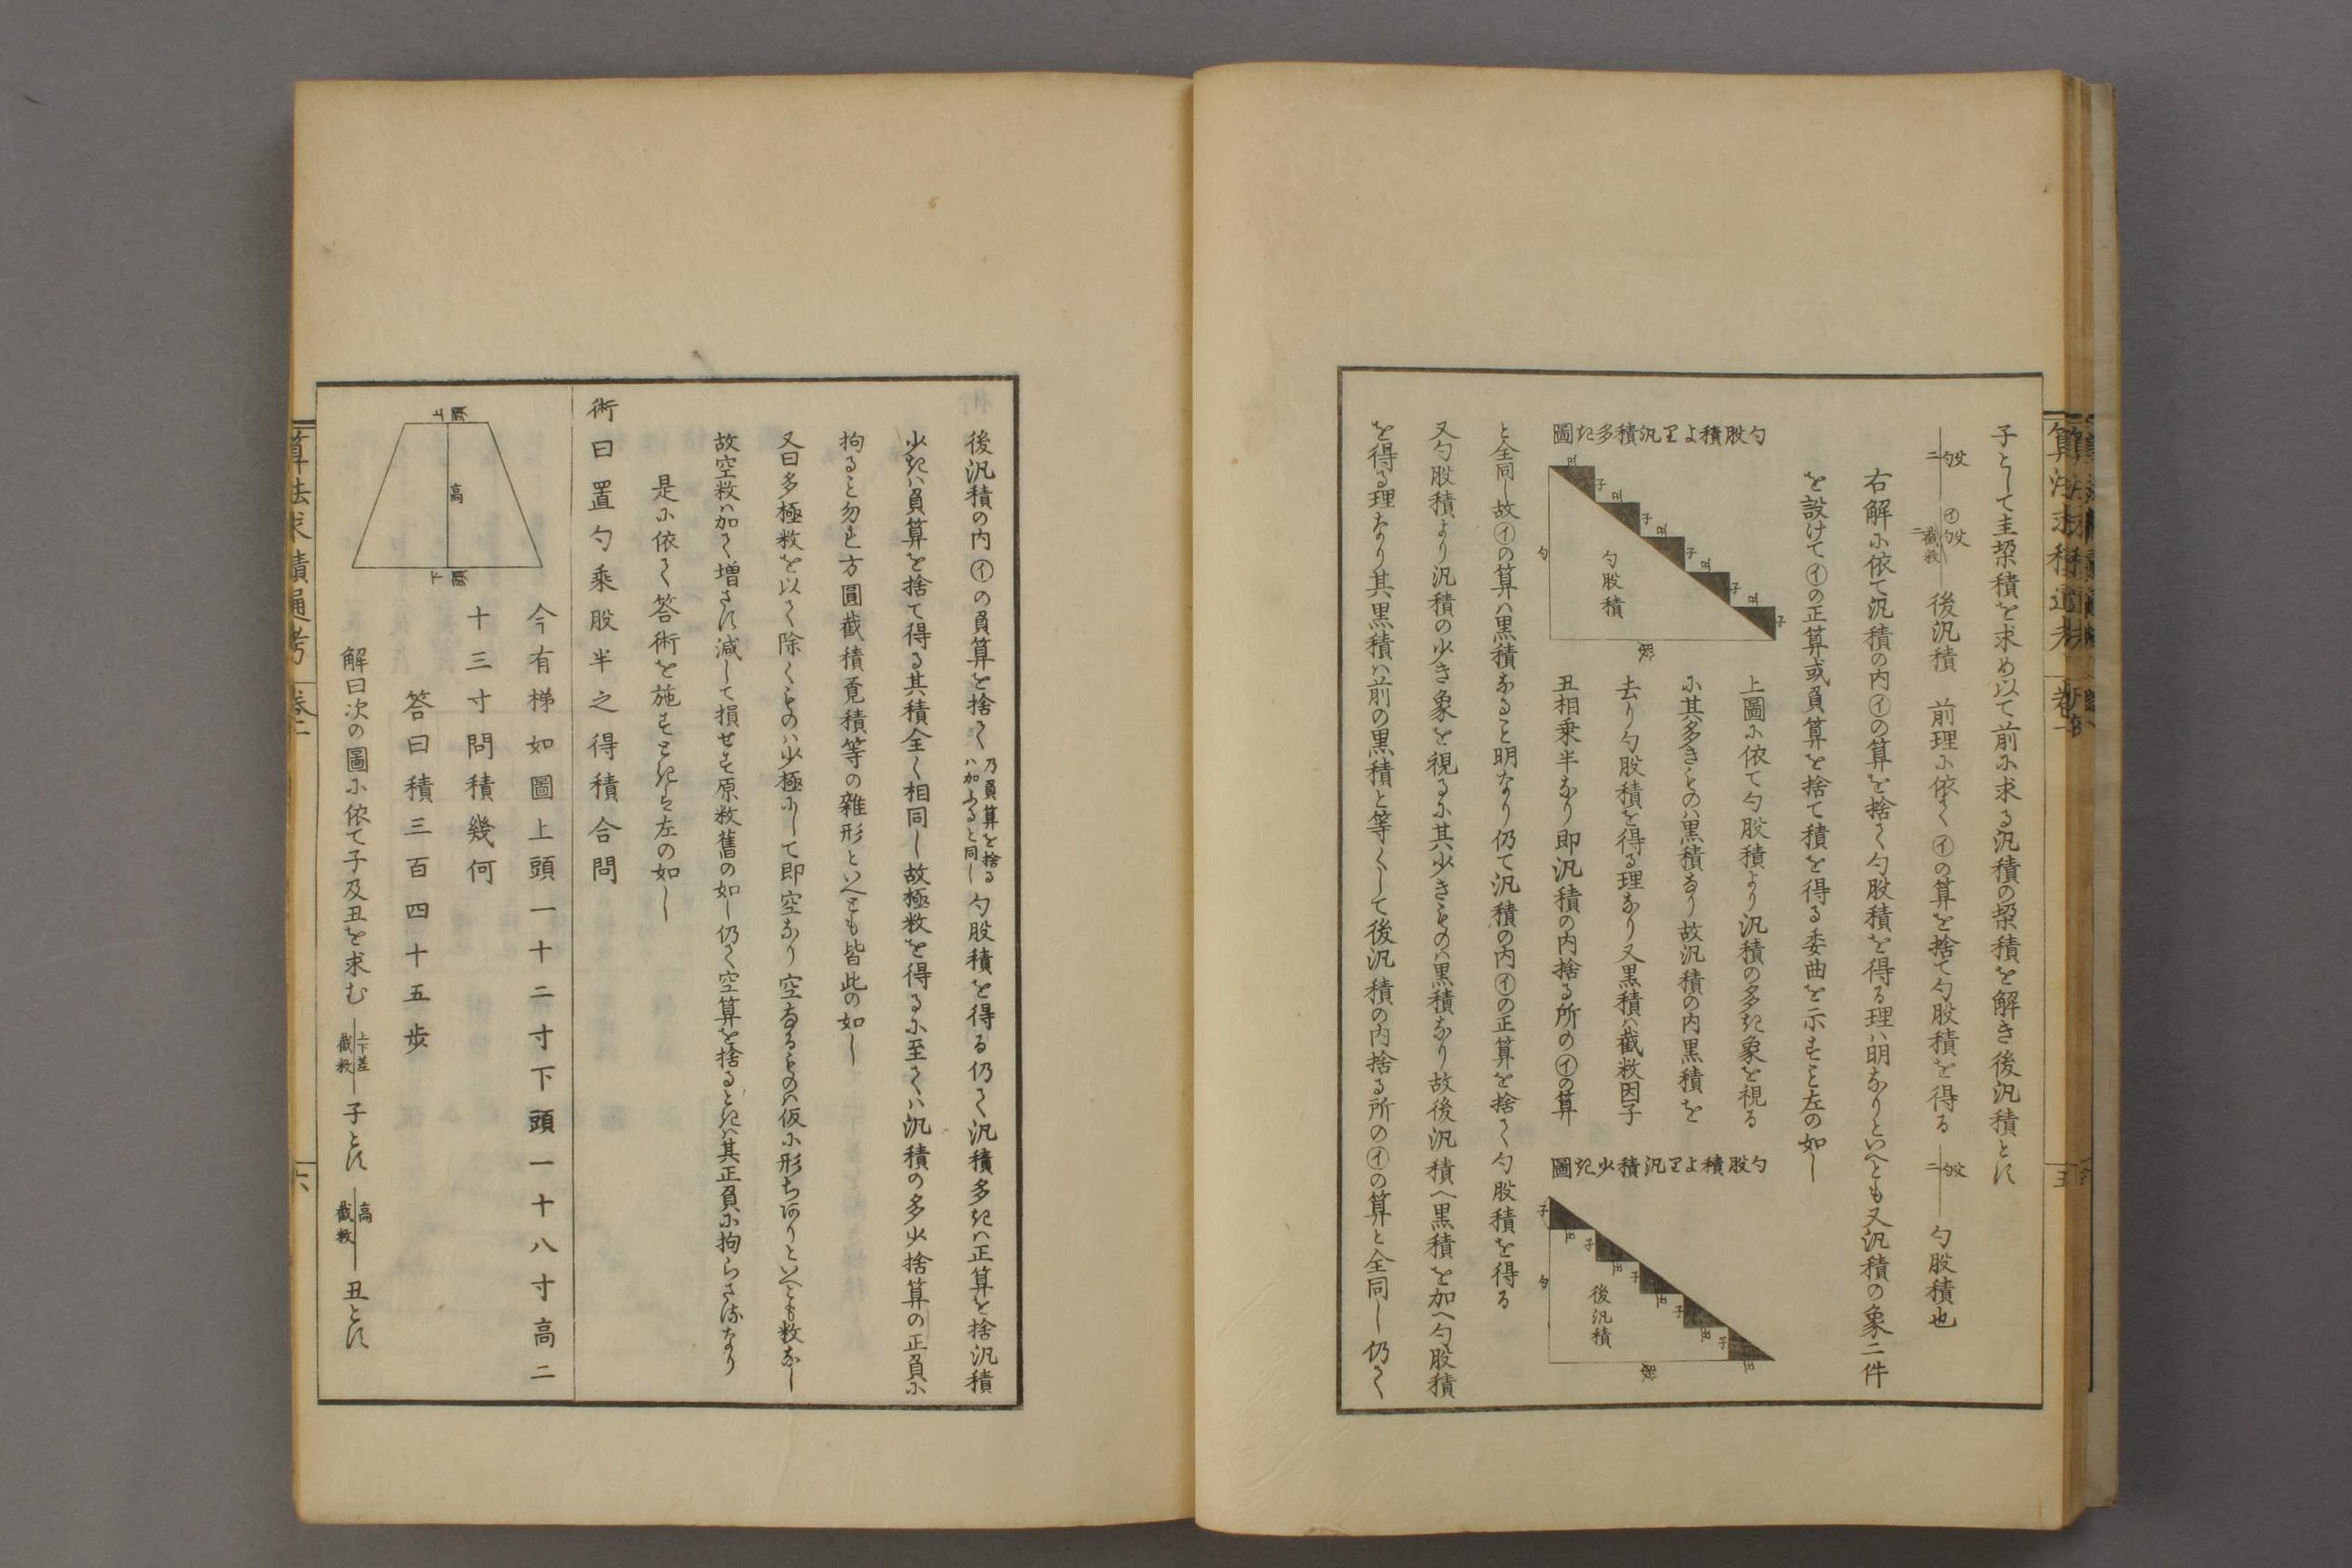 子として圭墪積を求め以て前に求る汎積の墪積を解き後汎積とす
後汎積 前理に依て㋑の算を捨て勾股積を得る 勾股積也
右解に依て汎積の内㋑の算を捨て勾股積を得る理ハ明なりといへとも又汎積の象二件
を設けて㋑の正算或負算を捨て積を得る委曲を示すこと左の如し
勾股積より汎積多き圖
子
丑
勾
股
勾股積
上圖に依て勾股積より汎積の多き象を視る
に其多きものハ黒積なり故汎積の内黒積を
去り勾股積を得る理なり又黒積ハ截数因子
丑相乗半なり即汎積の内捨る所の㋑の算
勾股積より汎積少き圖
子
丑
勾
股
後汎積
と全同し故㋑の算ハ黒積なること明なり仍て汎積の内㋑の正算を捨て勾股積を得る
又勾股積より汎積の少き象を視るに其少きものハ黒積なり故後汎積へ黒積を加へ勾股積
を得る理なり其黒積ハ前の黒積と等くして後汎積の内捨る所の㋑の算と全同し仍て
算法求積通考 巻一 五
後汎積の内㋑の負算を捨て 乃負算を捨る ハ加ふると同し 勾股積を得る仍て汎積多きハ正算を捨汎積
少きハ負算を捨て得る其積全く相同し故極数を得るに至てハ汎積の多少捨算の正負に
拘ること勿れ方圓截積覔積等の雜形といへとも皆此の如し
又曰多極数を以て除くものハ少極にして即空なり空なるものハ仮に形ちありといへとも数なし
故空数ハ加て増さす減して損せす原数舊の如し仍て空算を捨るときハ其正負に拘らさるなり
是に依て答術を施すときハ左の如し
術曰置勾乘股半之得積合問
上頭
高
下頭
今有梯如圖上頭一十二寸下頭一十八寸高二
十三寸問積幾何
答曰積三百四十五歩
解曰次の圖に依て子及丑を求む 上下差 截数 子とす 高 截数 丑とす
算法求積通考 巻一 六